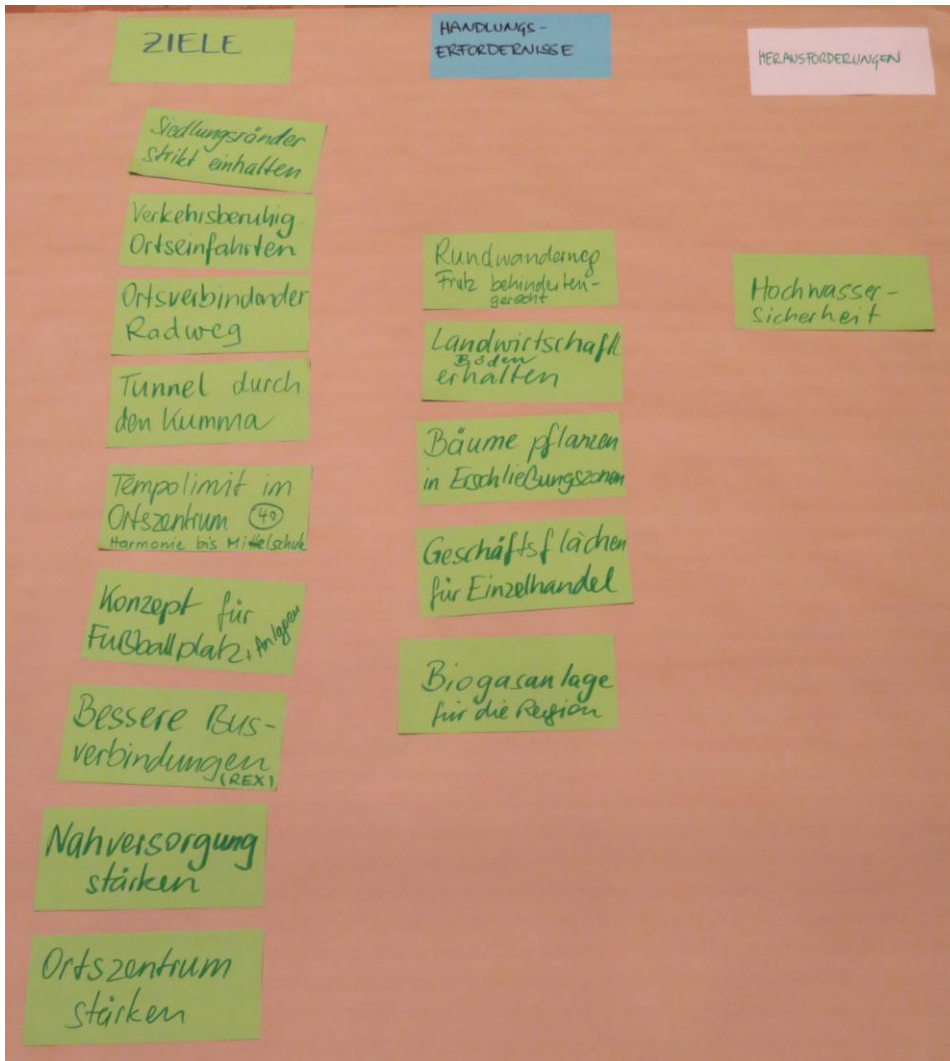 ZIELE
Siedlungsränder
strikt einhalten
Verkehrsberuhig.
Ortseinfahrten
Ortsverbindender
Radweg
Tunnel durch
den Kumma
Tempolimit im
Ortszentrum 40
Harmonie bis Mittelschule
Konzept für
Fußballplatz + Anlagen
Bessere Bus-
verbindungen
(REX)
Nahversorgung
stärken
Ortszentrum
stärken
HANDLUNGS-
ERFORDERNISSE
Rundwanderweg
Frutz behinderten-
gerecht
Landwirtschaftl.
Böden
erhalten
Bäume pflanzen
in Erschließungszonen
Geschäftsflächen
für Einzelhandel
Biogasanlage
für die Region
HERAUSFORDERUNGEN
Hochwasser-
sicherheit